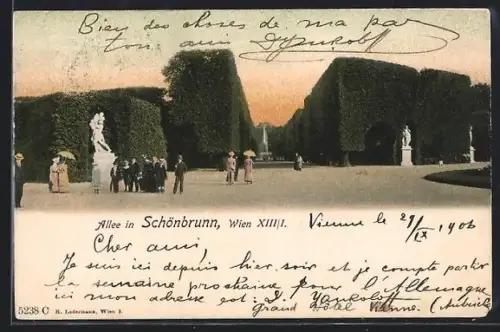 Bien des choses de ma part
ton ami
Allee in Schönbrunn, Wien XIII|1.
Vienne le 29/IX 1906
Cher ami,
Je suis ici depuis hier soir et je compte partir
la semaine prochaine pour l'Allemagne
ici mon adresse est:
Grand Hôtel Vienne. (Autriche)
5238 C R. Ledermann, Wien I.